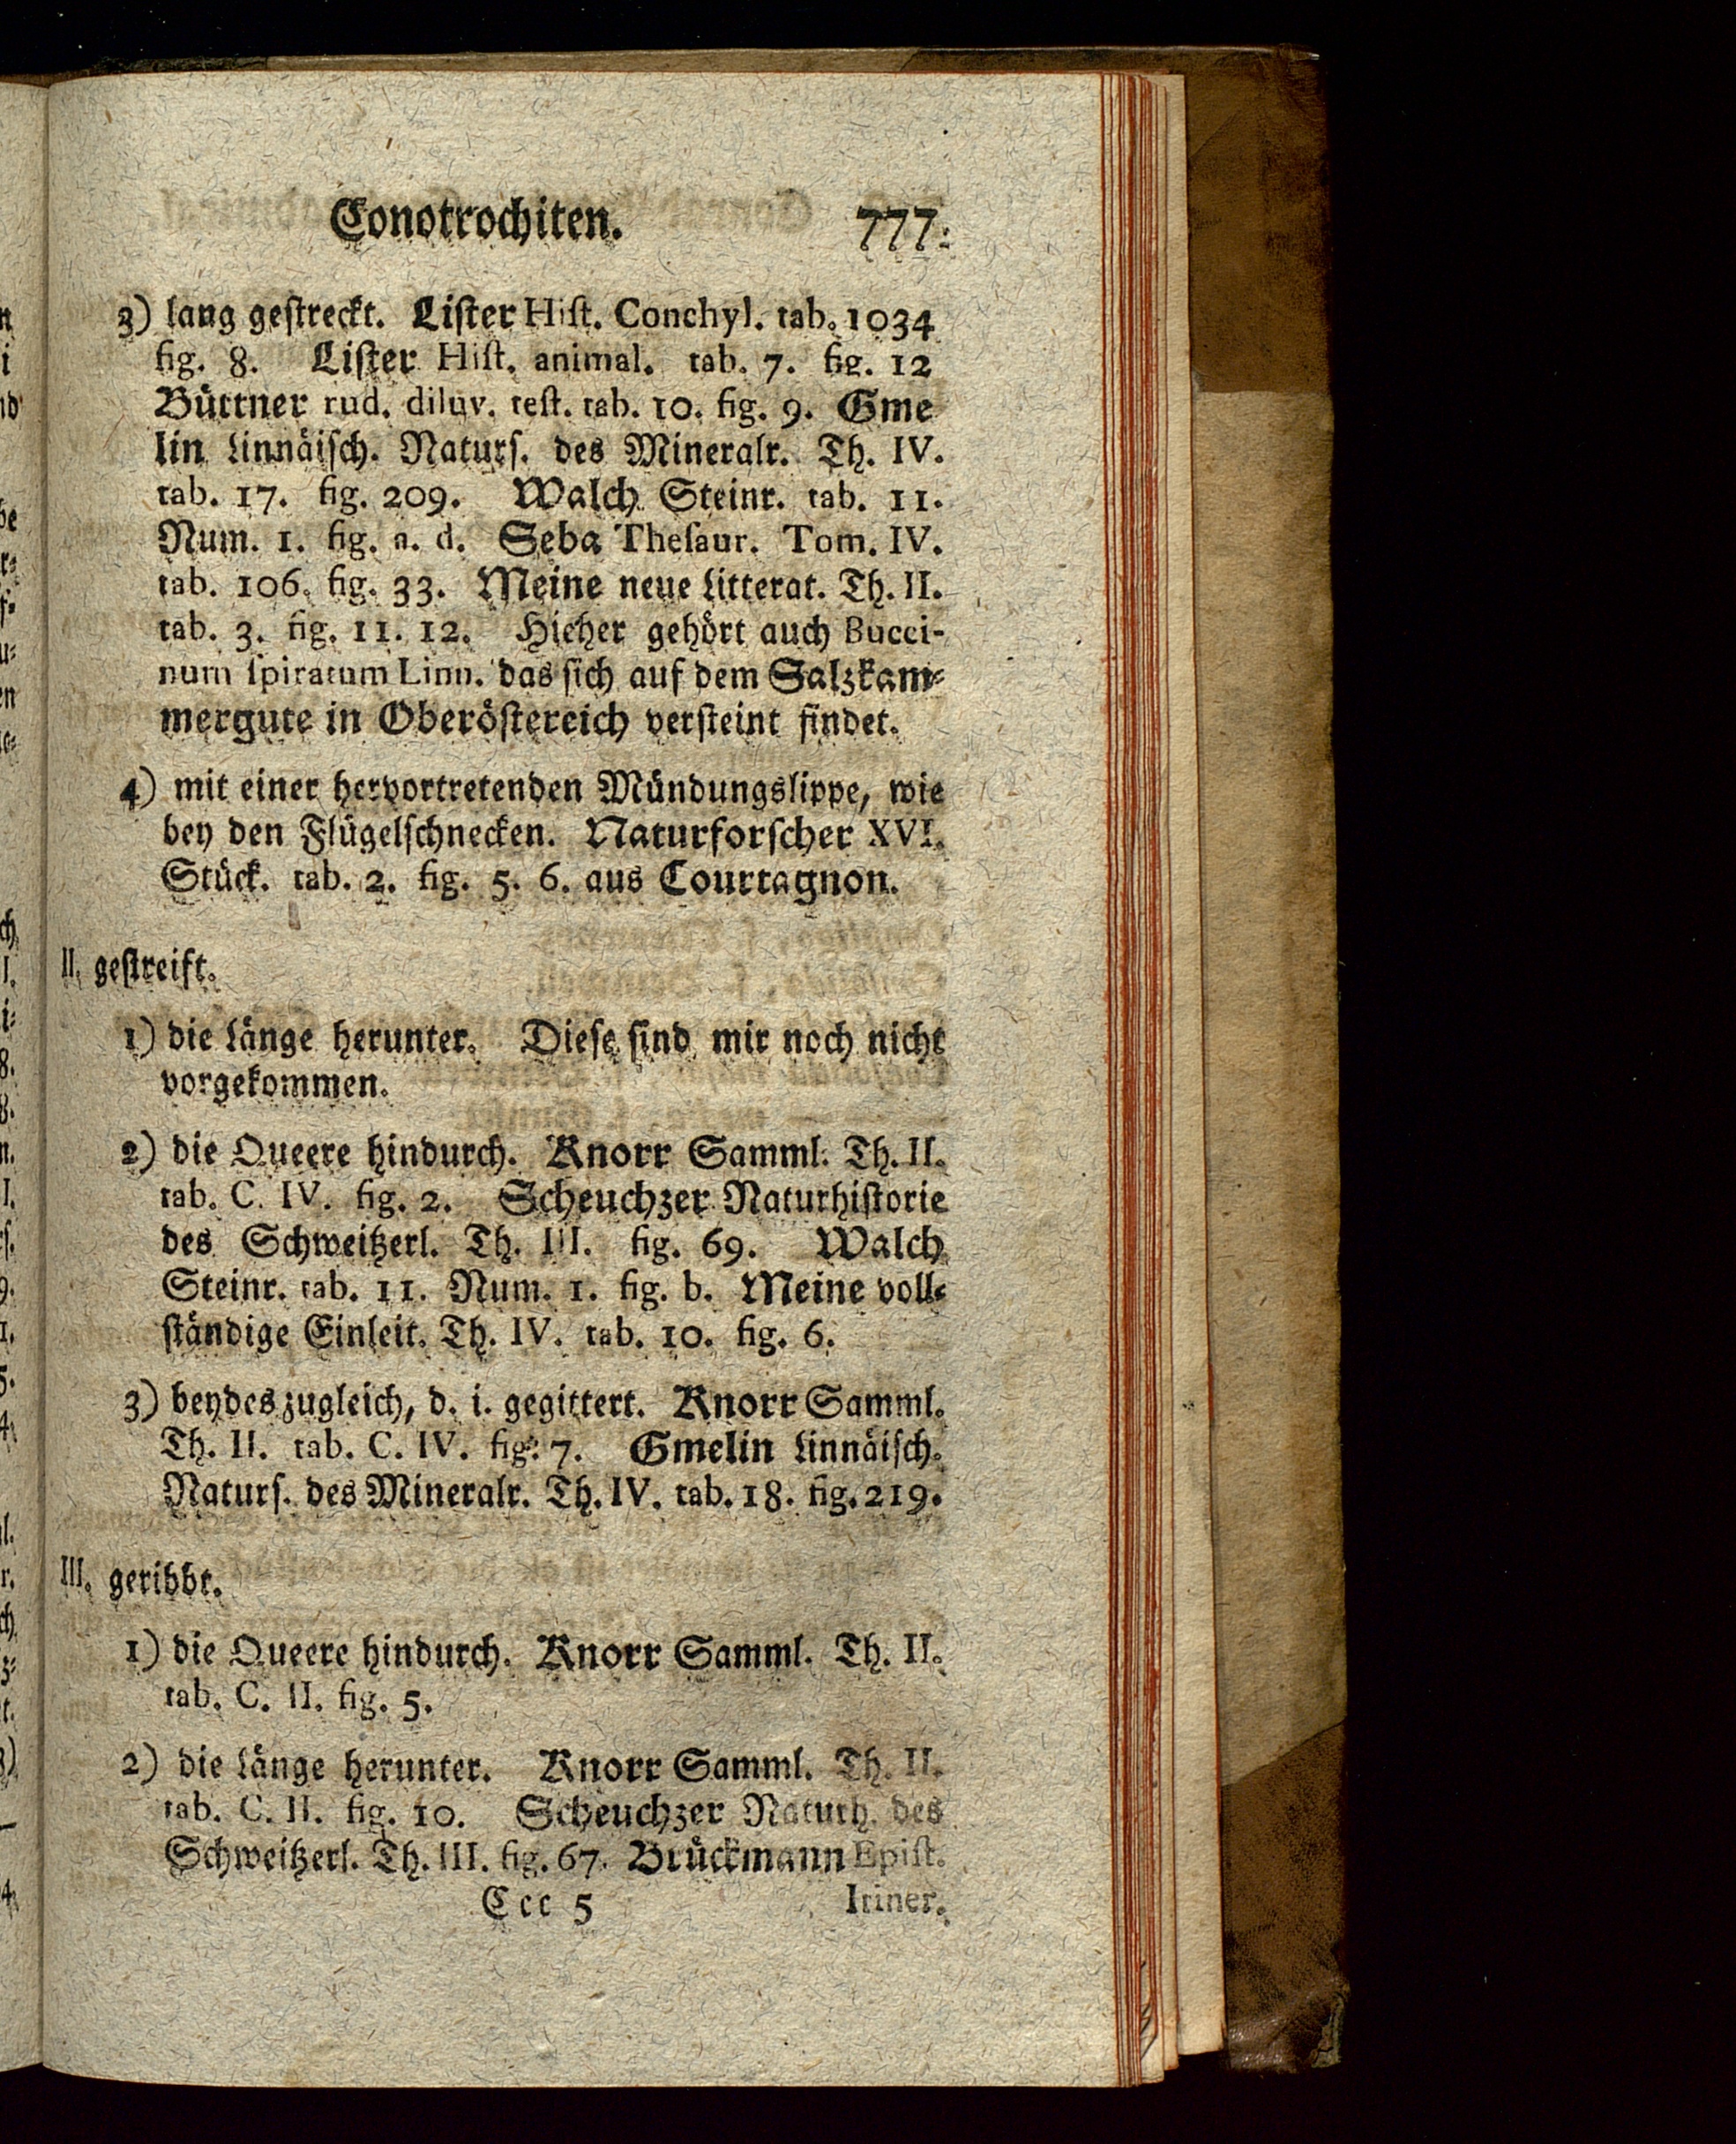 Conotrochiten. 777.
3) lang gestreckt. Lister Hist. Conchyl. tab. 1034
fig. 8. Lister Hist. animal. tab. 7. fig. 12
Büttner rud. diluv. test. tab. 10. fig. 9. Gme
lin Linnäisch. Naturs. des Mineralr. Th. IV.
tab. 17. fig. 209. Walch Steinr. tab. 11.
Num. 1. fig. a. d. Seba Thesaur. Tom. IV.
tab. 106. fig. 33. Meine neue Litterat. Th. II.
tab. 3. fig. 11. 12. Hieher gehört auch Bucci-
num spiratum Linn. das sich auf dem Salzkam-
mergute in Oberöstereich versteint findet.
4) mit einer hervortretenden Mündungslippe, wie
bey den Flügelschnecken. Naturforscher XVI.
Stück. tab. 2. fig. 5. 6. aus Courtagnon.
II. gestreift.
1) die Länge herunter. Diese sind mir noch nicht
vorgekommen.
2) die Queere hindurch. Knorr Samml. Th. II.
tab. C. IV. fig. 2. Scheuchzer Naturhistorie
des Schweitzerl. Th. III. fig. 69. Walch
Steinr. tab. 11. Num. 1. fig. b. Meine voll-
ständige Einleit. Th. IV. tab. 10. fig. 6.
3) beydes zugleich, d. i. gegittert. Knorr Samml.
Th. II. tab. C. IV. fig. 7. Gmelin Linnäisch.
Naturs. des Mineralr. Th. IV. tab. 18. fig. 219.
III. geribbt.
1) die Queere hindurch. Knorr Samml. Th. II.
tab. C. II. fig. 5.
2) die Länge herunter. Knorr Samml. Th. II.
tab. C. II. fig. 10. Scheuchzer Naturh. des
Schweitzerl. Th. III. fig. 67. Brückmann Epist.
Ccc 5 Itiner.